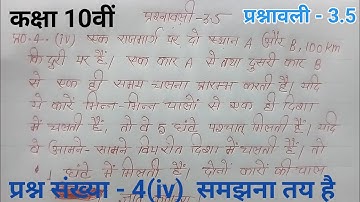 कक्षा 10वीं
प्रश्नावली-3.5
प्रश्नावली - 3.5
प्र०-4. (iv) एक राजमार्ग पर दो स्थान A और B, 100 km
की दूरी पर हैं। एक कार A से तथा दूसरी कार B
से एक ही समय चलना प्रारम्भ करती है। यदि
ये कारें भिन्न-भिन्न चालों से एक ही दिशा
में चलती हैं, तो वे 5 घंटे पश्चात् मिलती हैं। यदि
वे आमने-सामने विपरीत दिशा में चलती हैं, तो
1 घंटे में मिलती हैं। दोनों कारों की चाल
प्रश्न संख्या - 4(iv) समझना तय है